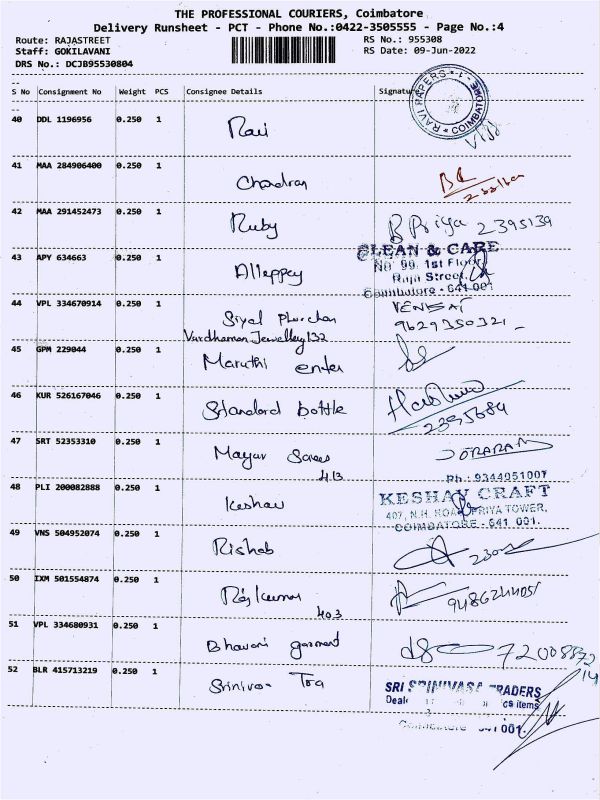 THE PROFESSIONAL COURIERS, Coimbatore
Delivery Runsheet - PCT - Phone No.:0422-3505555 - Page No.:4
Route: RAJASTREET RS No.: 955308
Staff: GOKILAVANI RS Date: 09-Jun-2022
DRS No.: DCJB95530804
S No Consignment No Weight PCS Consignee Details Signature
RAVI PAPERS COIMBATORE - 1
40 DDL 1196956 0.250 1 Ravi
41 MAA 284906400 0.250 1 Chandran
42 MAA 291452473 0.250 1 Ruby B Priya 2395139
43 APY 634663 0.250 1 Alleppey
CLEAN & CARE
No 99, 1st Floor
Raja Street,
Coimbatore - 641 001
44 VPL 334670914 0.250 1 Siyal VENKAT
9629350321
Vardhaman Jewellery 132
45 GPM 229044 0.250 1 Maruthi enter
46 KUR 526167046 0.250 1 Standard bottle
2395684
47 SRT 52353310 0.250 1 Mayur Sarees
413
Ph : 9344951007
48 PLI 200082888 0.250 1 Keshav KESHAV CRAFT
407, N.H. ROAD, PRIYA TOWER,
COIMBATORE - 641 001.
49 VNS 504952074 0.250 1 Rishab
50 IXM 501554874 0.250 1 Rajkumar
403
51 VPL 334680931 0.250 1 Bhavani garment
52 BLR 415713219 0.250 1 Srinivasa Tra
SRI SRINIVASA TRADERS
Coimbatore - 641 001.